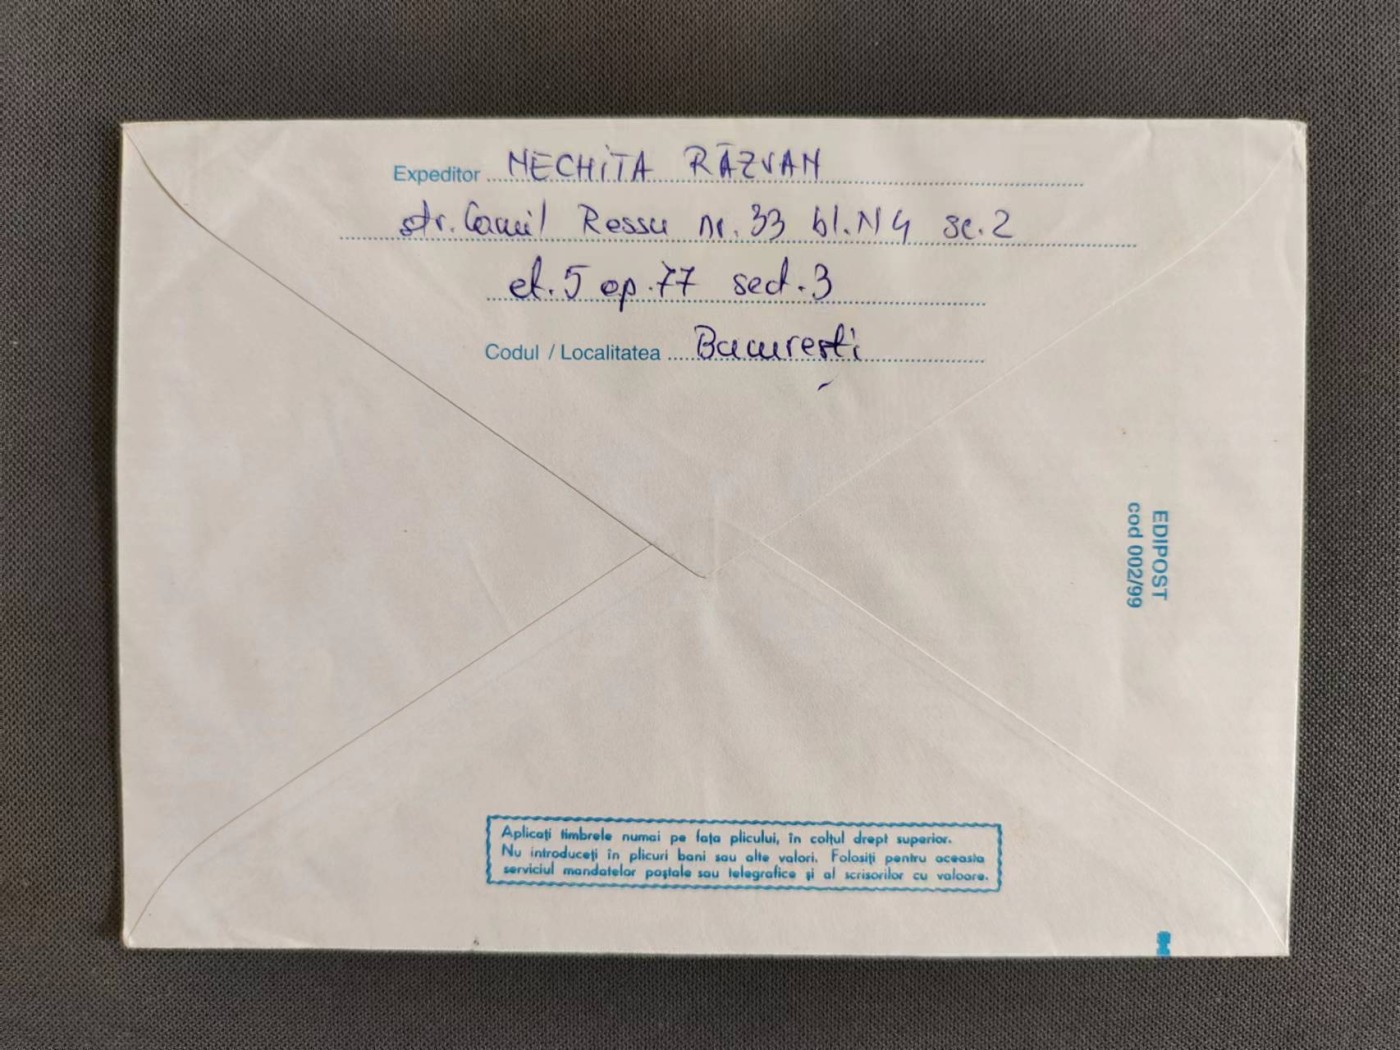 Expeditor NECHITA RĂZVAN
str. Camil Ressu nr. 33 bl. N4 sc. 2
et. 5 ap. 77 sect. 3
Codul / Localitatea București
EDIPOST
cod 002/99
Aplicați timbrele numai pe fața plicului, în colțul drept superior.
Nu introduceți în plicuri bani sau alte valori. Folosiți pentru aceasta
serviciul mandatelor poștale sau telegrafice și al scrisorilor cu valoare.